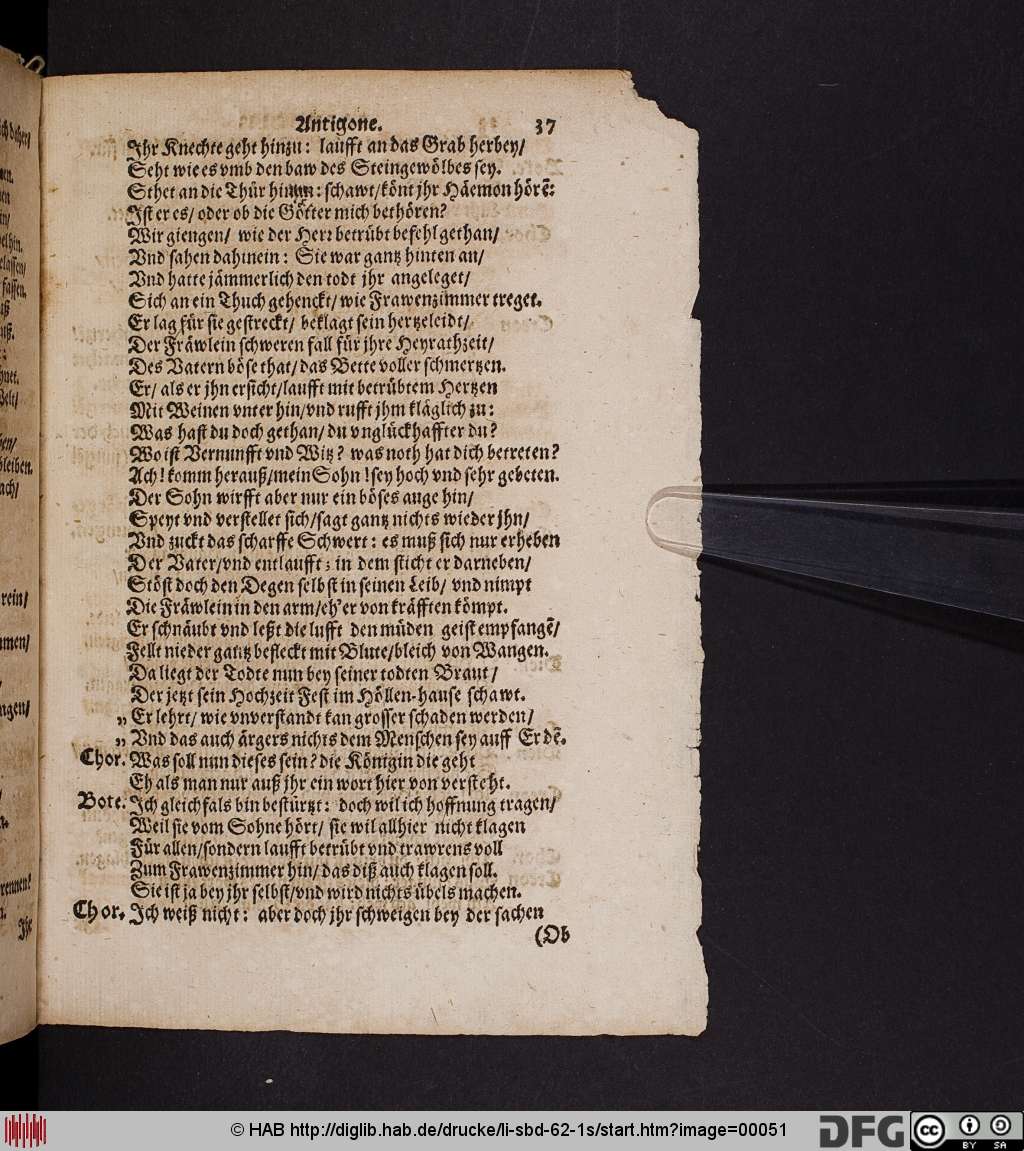 Antigone. 37
Jhr Knechte geht hinzu: laufft an das Grab herbey/
Seht wie es vmb den baw des Steingewölbes sey.
Sthet an die Thür hinan: schawt/könt jhr Häemon hörẽ:
Jst er es/ oder ob die Götter mich bethören?
Wir giengen/ wie der Herr betrübt befehl gethan/
Vnd sahen dahinein: Sie war gantz hinten an/
Vnd hatte jämmerlich den todt jhr angeleget/
Sich an ein Thuch gehenckt/ wie Frawenzimmer treget.
Er lag für sie gestreckt/ beklagt sein hertzeleidt/
Der Fräwlein schweren fall für jhre Heyrathzeit/
Des Vatern böse that/ das Bette voller schmertzen.
Er/ als er jhn ersicht/laufft mit betrübtem Hertzen
Mit Weinen vnter hin/vnd rufft jhm kläglich zu:
Was hast du doch gethan/ du vnglückhaffter du?
Wo ist Vernunfft vnd Witz? was noth hat dich betreten?
Ach! komm herauß/mein Sohn! sey hoch vnd sehr gebeten.
Der Sohn wirfft aber nur ein böses auge hin/
Speyt vnd verstellet sich/sagt gantz nichts wieder jhn/
Vnd zuckt das scharffe Schwert: es muß sich nur erheben
Der Vater/vnd entlaufft; in dem sticht er darneben/
Stöst doch den Degen selbst in seinen Leib/ vnd nimpt
Die Fräwlein in den arm/eh'er von kräfften kömpt.
Er schnäubt vnd leßt die lufft den müden geist empfangẽ/
Fellt nieder gantz befleckt mit Blute/bleich von Wangen.
Da liegt der Todte nun bey seiner todten Braut/
Der jetzt sein Hochzeit Fest im Höllen-hause schawt.
„ Er lehrt/ wie vnverstandt kan grosser schaden werden/
„ Vnd das auch ärgers nichts dem Menschen sey auff Erdẽ.
Chor. Was soll nun dieses sein? die Königin die geht
Eh als man nur auß jhr ein wort hier von versteht.
Bote. Jch gleichfals bin bestürtzt: doch wil ich hoffnung tragen/
Weil sie vom Sohne hört/ sie wil allhier nicht klagen
Für allen/sondern laufft betrübt vnd trawrens voll
Zum Frawenzimmer hin/ das diß auch klagen soll.
Sie ist ja bey jhr selbst/vnd wird nichts übels machen.
Chor. Jch weiß nicht: aber doch jhr schweigen bey der sachen
(Ob
© HAB http://diglib.hab.de/drucke/li-sbd-62-1s/start.htm?image=00051
DFG
cc
BY SA